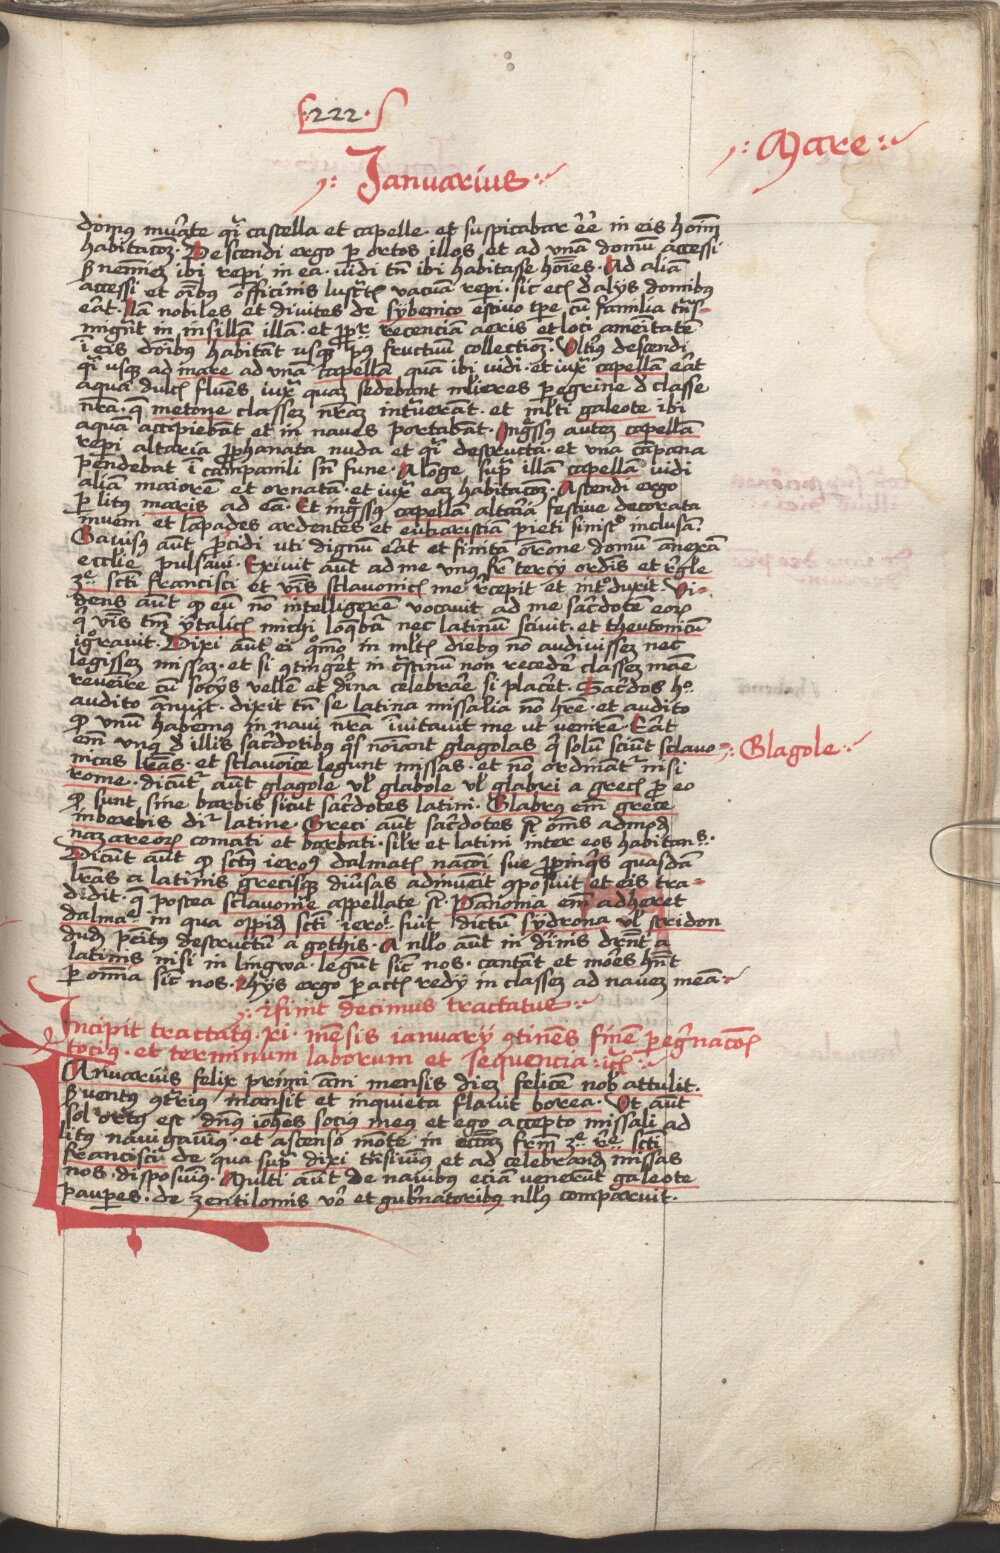 ·222·
·: Ianuarius :·
·: Mare :·
domus murate q̃i castella et capelle · et suspicabar eē in eis hoīm
habitacōeꝫ · Descendi ergo ꝑ ortos illos et ad vnā domū accessi
sꝫ neminem ibi reperi in ea · vidi tn̄ ibi habitasse hoīes · Ad aliā
accessi et oībus officinis lustratꝭ vacuā reperi · sic ecī d alijs domibus
erāt · Nā nobiles et diuites de sybenico estiuo tpe cū familia trās-
migrāt in insullā illam · et ꝓpter recenciā aeris et loci amenitatē
ī eis domibus habitāt usqꝫ post fructuum collectionē · Vlterius descendi
q̃i usqꝫ ad mare ad vnā capellā quā ibi vidi · et iuxta capellā erāt
aqua dulcꝭ fluens iuxta quaꝫ sedebant mulieres peregrine d classe
nr̃a · q̃ metone classem nr̃am intrauerāt · et mlti galeote ibi
aquā accipiebāt et in naues portabāt · Ingressus autem capellā
reperi altaria ꝓphanata nuda et q̃i destructa · et vna campana
pendebat ī campanili sn̄ fune · A longe supra illā capellā vidi
aliam maiorem et ornatā · et iuxta eaꝫ habitacōeꝫ · Ascendi ergo
ꝑ litus maris ad eā · Et ingressus capellā altaria festiue decorata
inueni et lāpades ardentes et eukaristiam parieti sinistro inclusā
Gauisus aūt procidi uti dignum erāt et finita orone domum annexā
ecclīe pulsaui · Exiuit aūt ad me vnus fr̃ tercij ordīs et rēgle
3ᵉ scti Francisci et v̄bis sclauonicꝭ me recepit et introduxit · Vi-
dens aūt ꝙ eū nō intelligerē vocauit ad me sacerdotē eorꝫ
q̃ v̄bis tm̄ ytalicꝭ michi loquebatur nec latinum sciuit · et theutonicū
ignorauit · Dixi aūt ei quomō in mltꝭ diebus nō audiuissem nec
legissem missaꝫ · et si contingeret in crastinum non recedere classem mane
reuenire cū socijs vellē et diuina celebrare si placeret · Sacerdos hoc
audito annuit · dixit tn̄ se latina missalia nō hr̄e · et audito
ꝙ vnum haberemus in naui nr̃a īuitauit me ut venirē · Erāt
em̄ vnus d illis sacerdotibus q̃s noīant glagolas q̃ solū sciunt sclauo-
·: Glagole :·
nicas lr̄as · et sclauonice legunt missas · et nō ordinātur nisi
rome · dicūtur aūt glagole vl glabole vl glabri a grecꝭ ꝑ eo
ꝙ sunt sine barbis sicut sacerdotes latini · Glabrus em̄ grece
imberbis dr̄ latine · Greci aūt sacerdotes sūt omēs admodꝫ
nazareorꝫ comati et barbati · silr et latini inter eos habitans ·
Dicūt aūt ꝙ sctūs ieros dalmatꝭ nacōi sue ꝓpinq̃s quasdā
lr̄as a latinis grecisqꝫ diuersas adinuenit ꝯposuit et eis tra-
didit · q̃ postea sclauonie appellate st · Panionia em̄ adheret
dalmae in qua oppidꝫ scti ieroi fuit dictum sydrona vl stridon
dudꝫ penitus destructū a gothis · A nllo aūt in diuinis differūt a
latinis nisi in lingwa · legūt sicut nos · cantāt et mores hn̄t
ꝑ omnia sicut nos · Hijs ergo ꝑactꝭ redij in classeꝫ ad nauem meā ·
·: Et finit decimus tractatus :·
Incipit tractatus · xi · mensis ianuarij ꝯtinēs finē peregrinacōꝭ
tocius · et terminum laborum et sequencia :·
IAnuarius felix primi āni mensis dieꝫ felicē nobis attulit ·
sꝫ ventus ꝯtrarius mansit et inquieta flauit borea · Vt aūt
sol ortus est dn̄s iohēs socius meus et ego accepto missali ad
litus nauigauimus · et ascenso monte in ecclīaꝫ frm̄ 3ᵉ rᵉ scti
francisci de qua supra dixi transiuimus et ad celebrandꝫ missas
nos · disposuimus · Multi aūt de nauibus eciam venerunt galeote
pauperes · de zentilomis vero et gubernatoribus nullus comparuit ·